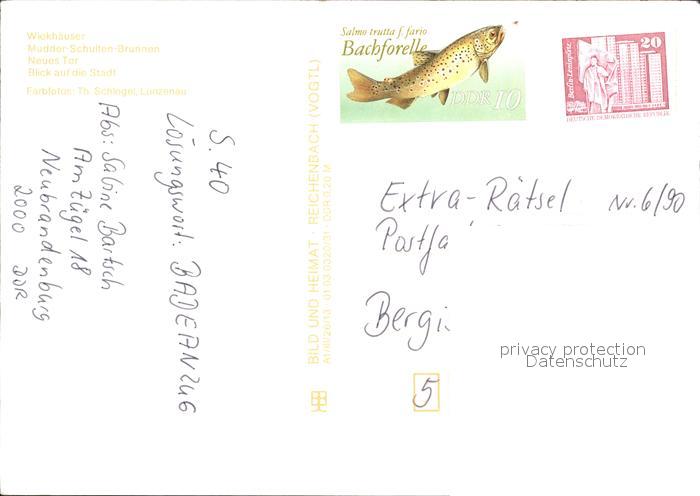 Wiekhäuser
Mudder-Schulten-Brunnen
Neues Tor
Blick auf die Stadt
Farbfotos: Th. Schlegel, Lunzenau
Salmo trutta f. fario
Bachforelle
DDR 10
20
Berlin-Leninplatz
DEUTSCHE DEMOKRATISCHE REPUBLIK
S. 40
Lösungswort: BADEANZUG
Abs: Sabine Bartsch
Am Zügel 18
Neubrandenburg
2000 DDR
BILD UND HEIMAT · REICHENBACH (VOGTL)
Extra-Rätsel Nr. 6/90
Postfa
Bergi
5
privacy protection
Datenschutz